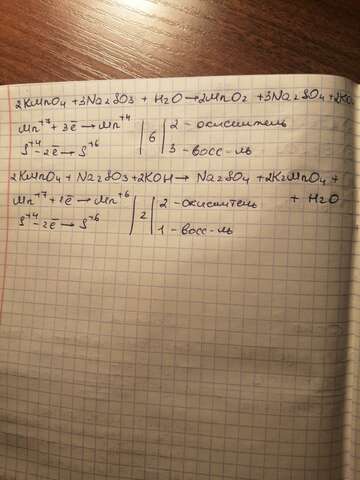 2KMnO4 + 3Na2SO3 + H2O → 2MnO2 + 3Na2SO4 + 2KO
Mn+7 + 3ē → Mn+4 | 6 | 2 - окислитель
S+4 - 2ē → S+6 | 3 - восс-ль
2KMnO4 + Na2SO3 + 2KOH → Na2SO4 + 2K2MnO4 +
+ H2O
Mn+7 + 1ē → Mn+6 | 2 | 2 - окислитель
S+4 - 2ē → S+6 | 1 - восс-ль